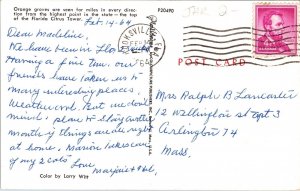 Orange groves are seen for miles in every direc-
tion from the highest point in the state — the top
of the Florida Citrus Tower.
P20490
Feb 14-64
Dear Madeline,
We have been in Florida
Having a fine time. Our
friends have taken us to
many interesting places.
Weather cool but we don't
mind. plan to stay another
month if things are all right
at home, Marion taking care
of my 2 cats Love
Marjorie + Hel.
Color by Larry Witt
POST CARD
Mrs Ralph B Lancaster
12 Wellington St apt 3
Arlington 74
Mass.